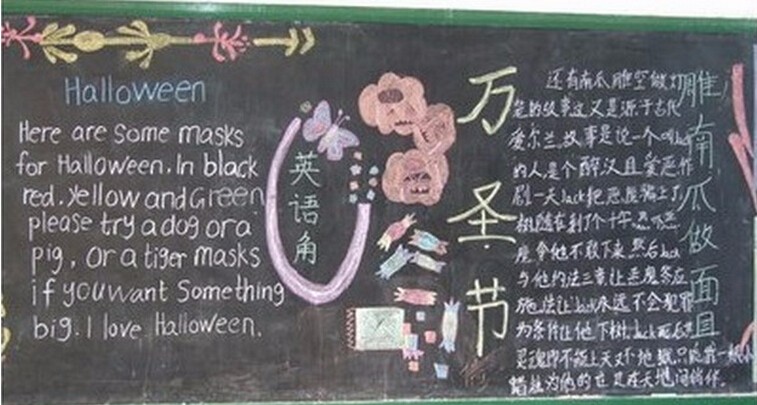 Halloween
Here are some masks
for Halloween. In black
red. Yellow and Green
please try a dog or a
pig, or a tiger masks
if you want Something
big. I love Halloween.
英语角
万圣节
还有南瓜雕空做灯
笼的故事这又是源于古代
爱尔兰故事是说一个
的人是个醉汉且爱恶作
剧一天Jack把恶魔骗上了
树随在刻了个十字
魔令他不敢下来然后Jack
与他约法三章让恶魔答应
施法让Jack永远不会犯罪
为条件让他下树Jack死后其
灵魂即不能上天又不地狱只能靠一根小
蜡烛为他的 在天地间徜徉
雕南瓜做面具